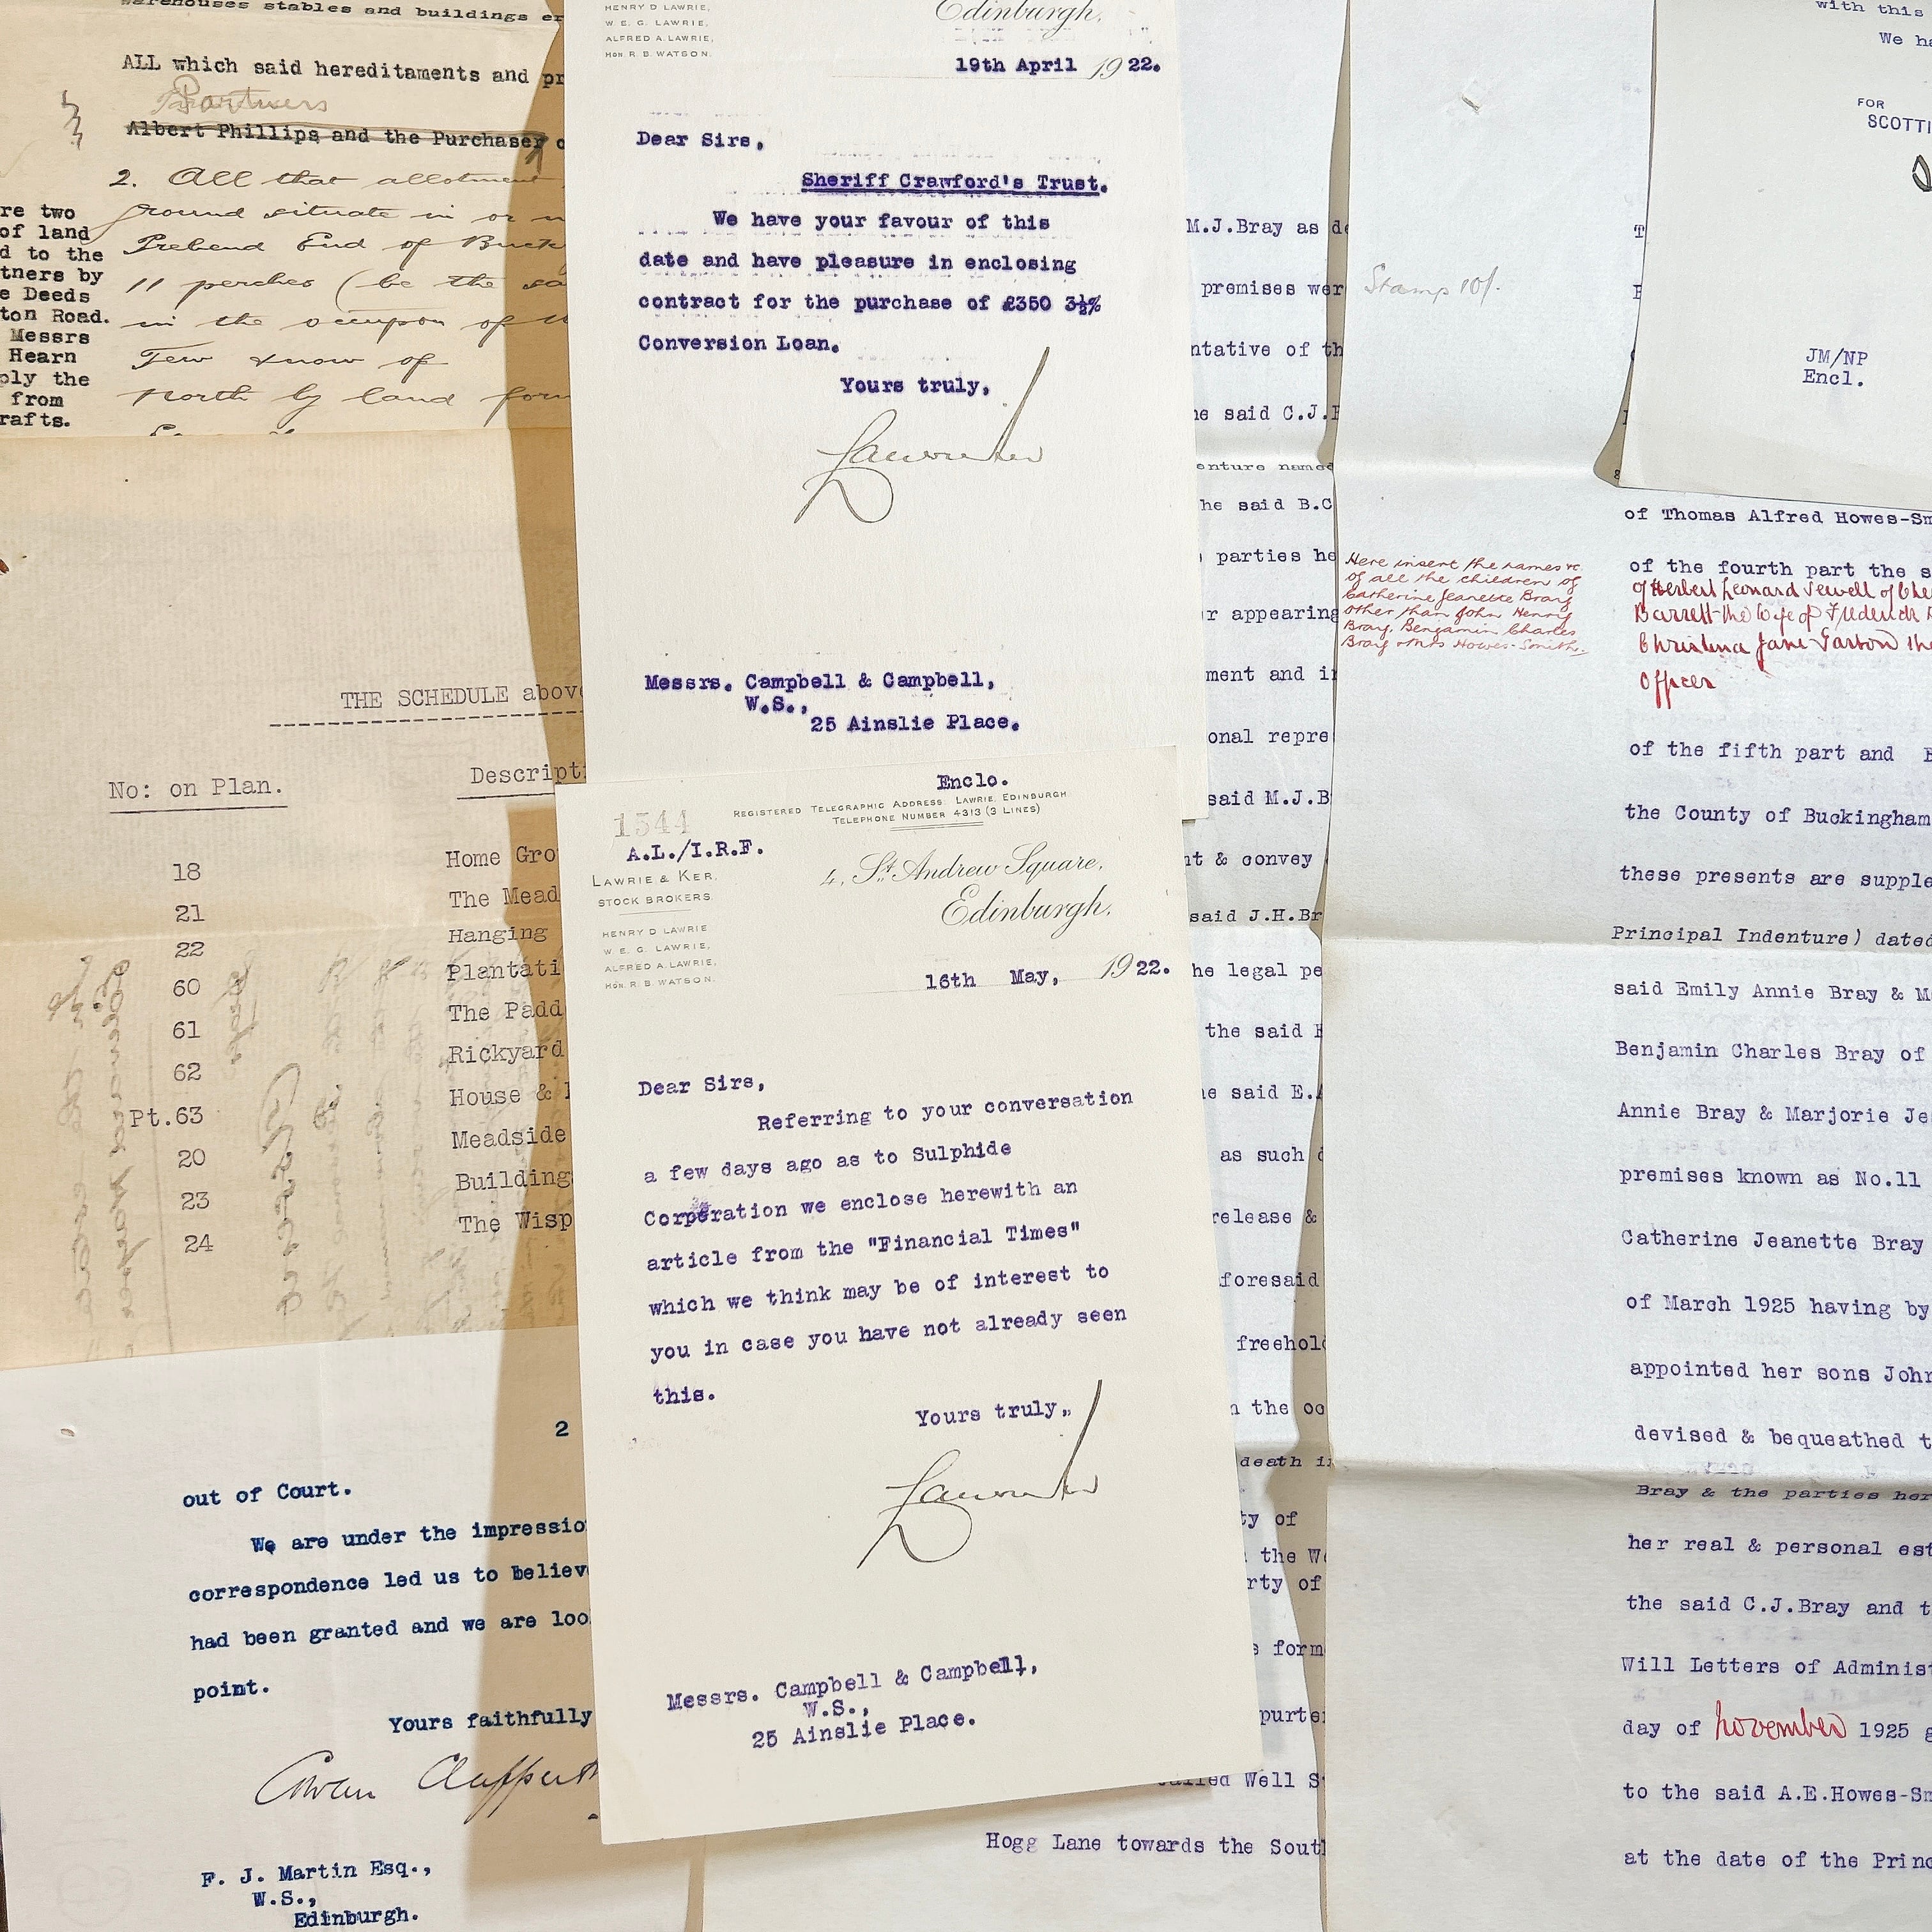 warehouses stables and buildings er
ALL which said hereditaments and pr
Partners
Albert Phillips and the Purchaser o
2. All that allotment
ground situate in or n
Prebend End of Buck
11 perches (be the sa
in the occupon of
Tew know of
North by land for
re two
of land
d to the
tners by
e Deeds
ton Road.
Messrs
Hearn
ply the
from
rafts.
THE SCHEDULE above
No: on Plan.
Descripti
18 Home Gro
21 The Mead
22 Hanging
60 Plantati
61 The Padd
62 Rickyard
Pt.63 House &
20 Meadside
23 Building
24 The Wisp
2
out of Court.
We are under the impressio
correspondence led us to believ
had been granted and we are loo
point.
Yours faithfully
F. J. Martin Esq.,
W.S.,
Edinburgh.
HENRY D LAWRIE,
W. E. G. LAWRIE,
ALFRED A. LAWRIE,
HON. R. B. WATSON.
Edinburgh,
19th April 1922.
Dear Sirs,
Sheriff Crawford's Trust.
We have your favour of this
date and have pleasure in enclosing
contract for the purchase of £350 3½%
Conversion Loan.
Yours truly,
Messrs. Campbell & Campbell,
W.S.,
25 Ainslie Place.
Enclo.
1544
REGISTERED TELEGRAPHIC ADDRESS: LAWRIE, EDINBURGH
TELEPHONE NUMBER 4313 (3 LINES)
A.L./I.R.F.
LAWRIE & KER,
STOCK BROKERS.
HENRY D LAWRIE
W. E. G. LAWRIE,
ALFRED A. LAWRIE,
HON. R. B. WATSON.
4, St. Andrew Square,
Edinburgh,
16th May, 1922.
Dear Sirs,
Referring to your conversation
a few days ago as to Sulphide
Corporation we enclose herewith an
article from the "Financial Times"
which we think may be of interest to
you in case you have not already seen
this.
Yours truly,
Messrs. Campbell & Campbell,
W.S.,
25 Ainslie Place.
M.J.Bray as de
premises wer
ntative of th
he said C.J.B
enture named
he said B.C
parties he
r appearing
ment and in
onal repre
said M.J.B
nt & convey
said J.H.Br
he legal pe
the said
he said E.A
as such
release &
foresaid
freehold
n the oc
death in
ty of
the We
rty of
s form
purte
called Well S
Hogg Lane towards the Sout
Stamp 10/.
Here insert the names &c
of all the children of
Catherine Jeanette Bray
other than John Henry
Bray, Benjamin Charles
Bray & Mrs Howes-Smith.
with this
We ha
FOR
SCOTTI
JM/NP
Encl.
of Thomas Alfred Howes-Sm
of the fourth part the s
of Herbert Leonard Sewell of Che
Barrett the wife of Frederick
Christina Jane Garson the
Officer
of the fifth part and
the County of Buckingham
these presents are supple
Principal Indenture) dated
said Emily Annie Bray & M
Benjamin Charles Bray of
Annie Bray & Marjorie Je
premises known as No.11
Catherine Jeanette Bray
of March 1925 having by
appointed her sons John
devised & bequeathed t
Bray & the parties her
her real & personal est
the said C.J.Bray and t
Will Letters of Administ
day of November 1925 g
to the said A.E.Howes-Sm
at the date of the Princ